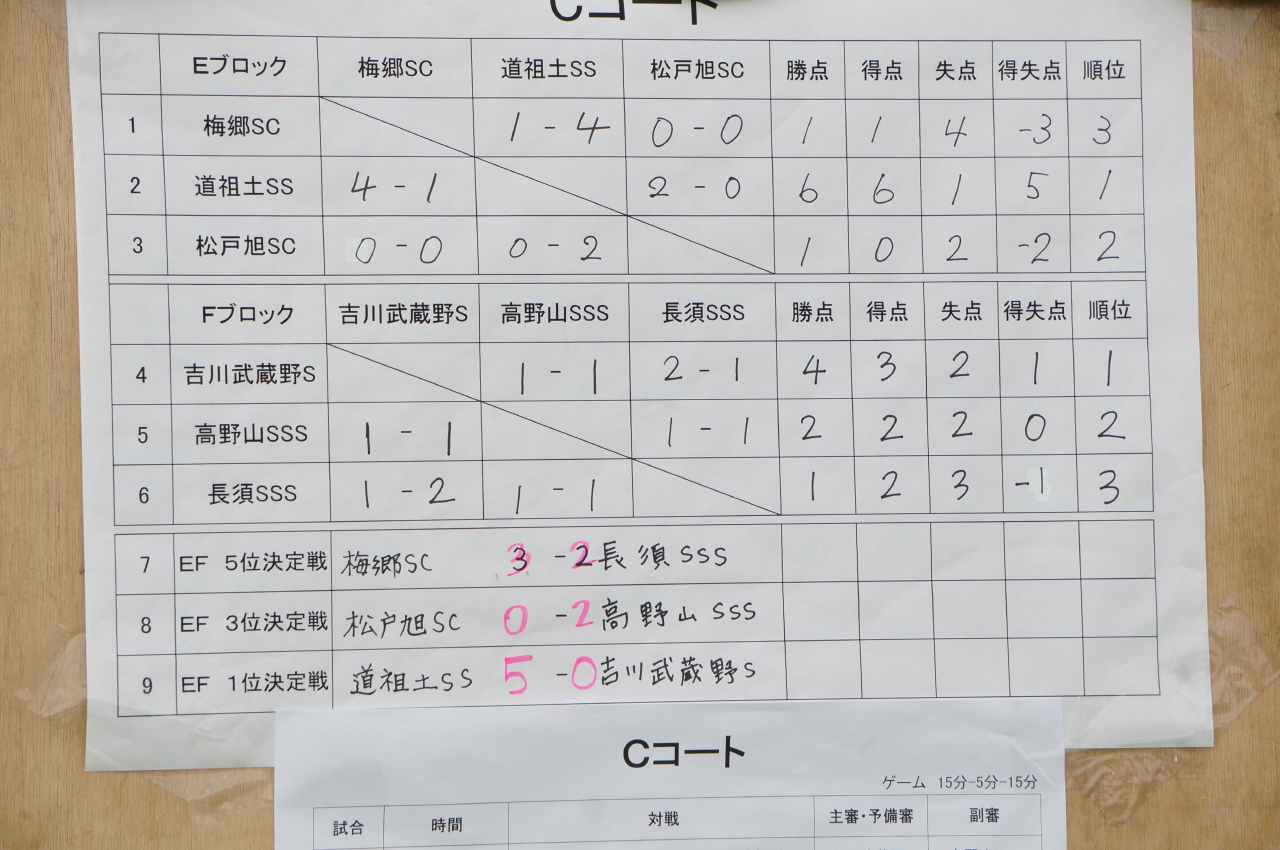 Cコート
Eブロック 梅郷SC 道祖土SS 松戸旭SC 勝点 得点 失点 得失点 順位
1 梅郷SC 1 - 4 0 - 0 1 1 4 -3 3
2 道祖土SS 4 - 1 2 - 0 6 6 1 5 1
3 松戸旭SC 0 - 0 0 - 2 1 0 2 -2 2
Fブロック 吉川武蔵野S 高野山SSS 長須SSS 勝点 得点 失点 得失点 順位
4 吉川武蔵野S 1 - 1 2 - 1 4 3 2 1 1
5 高野山SSS 1 - 1 1 - 1 2 2 2 0 2
6 長須SSS 1 - 2 1 - 1 1 2 3 -1 3
7 EF 5位決定戦 梅郷SC 3 - 2 長須SSS
8 EF 3位決定戦 松戸旭SC 0 - 2 高野山SSS
9 EF 1位決定戦 道祖土SS 5 - 0 吉川武蔵野S
Cコート
ゲーム 15分-5分-15分
試合 時間 対戦 主審・予備審 副審